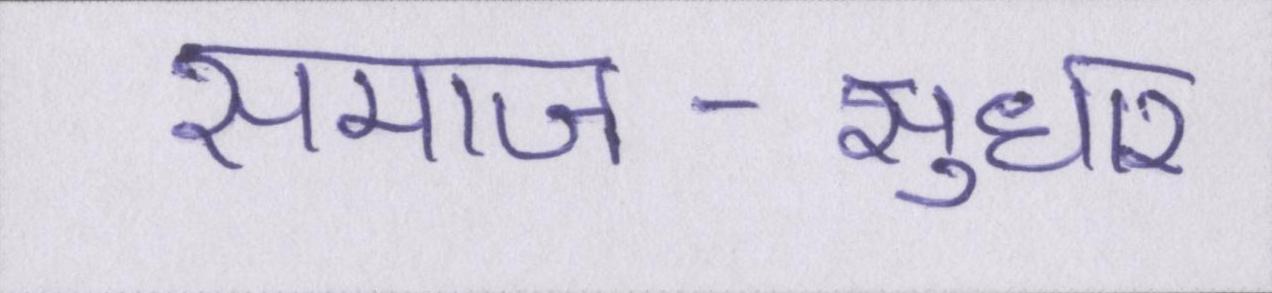 समाज - सुधार